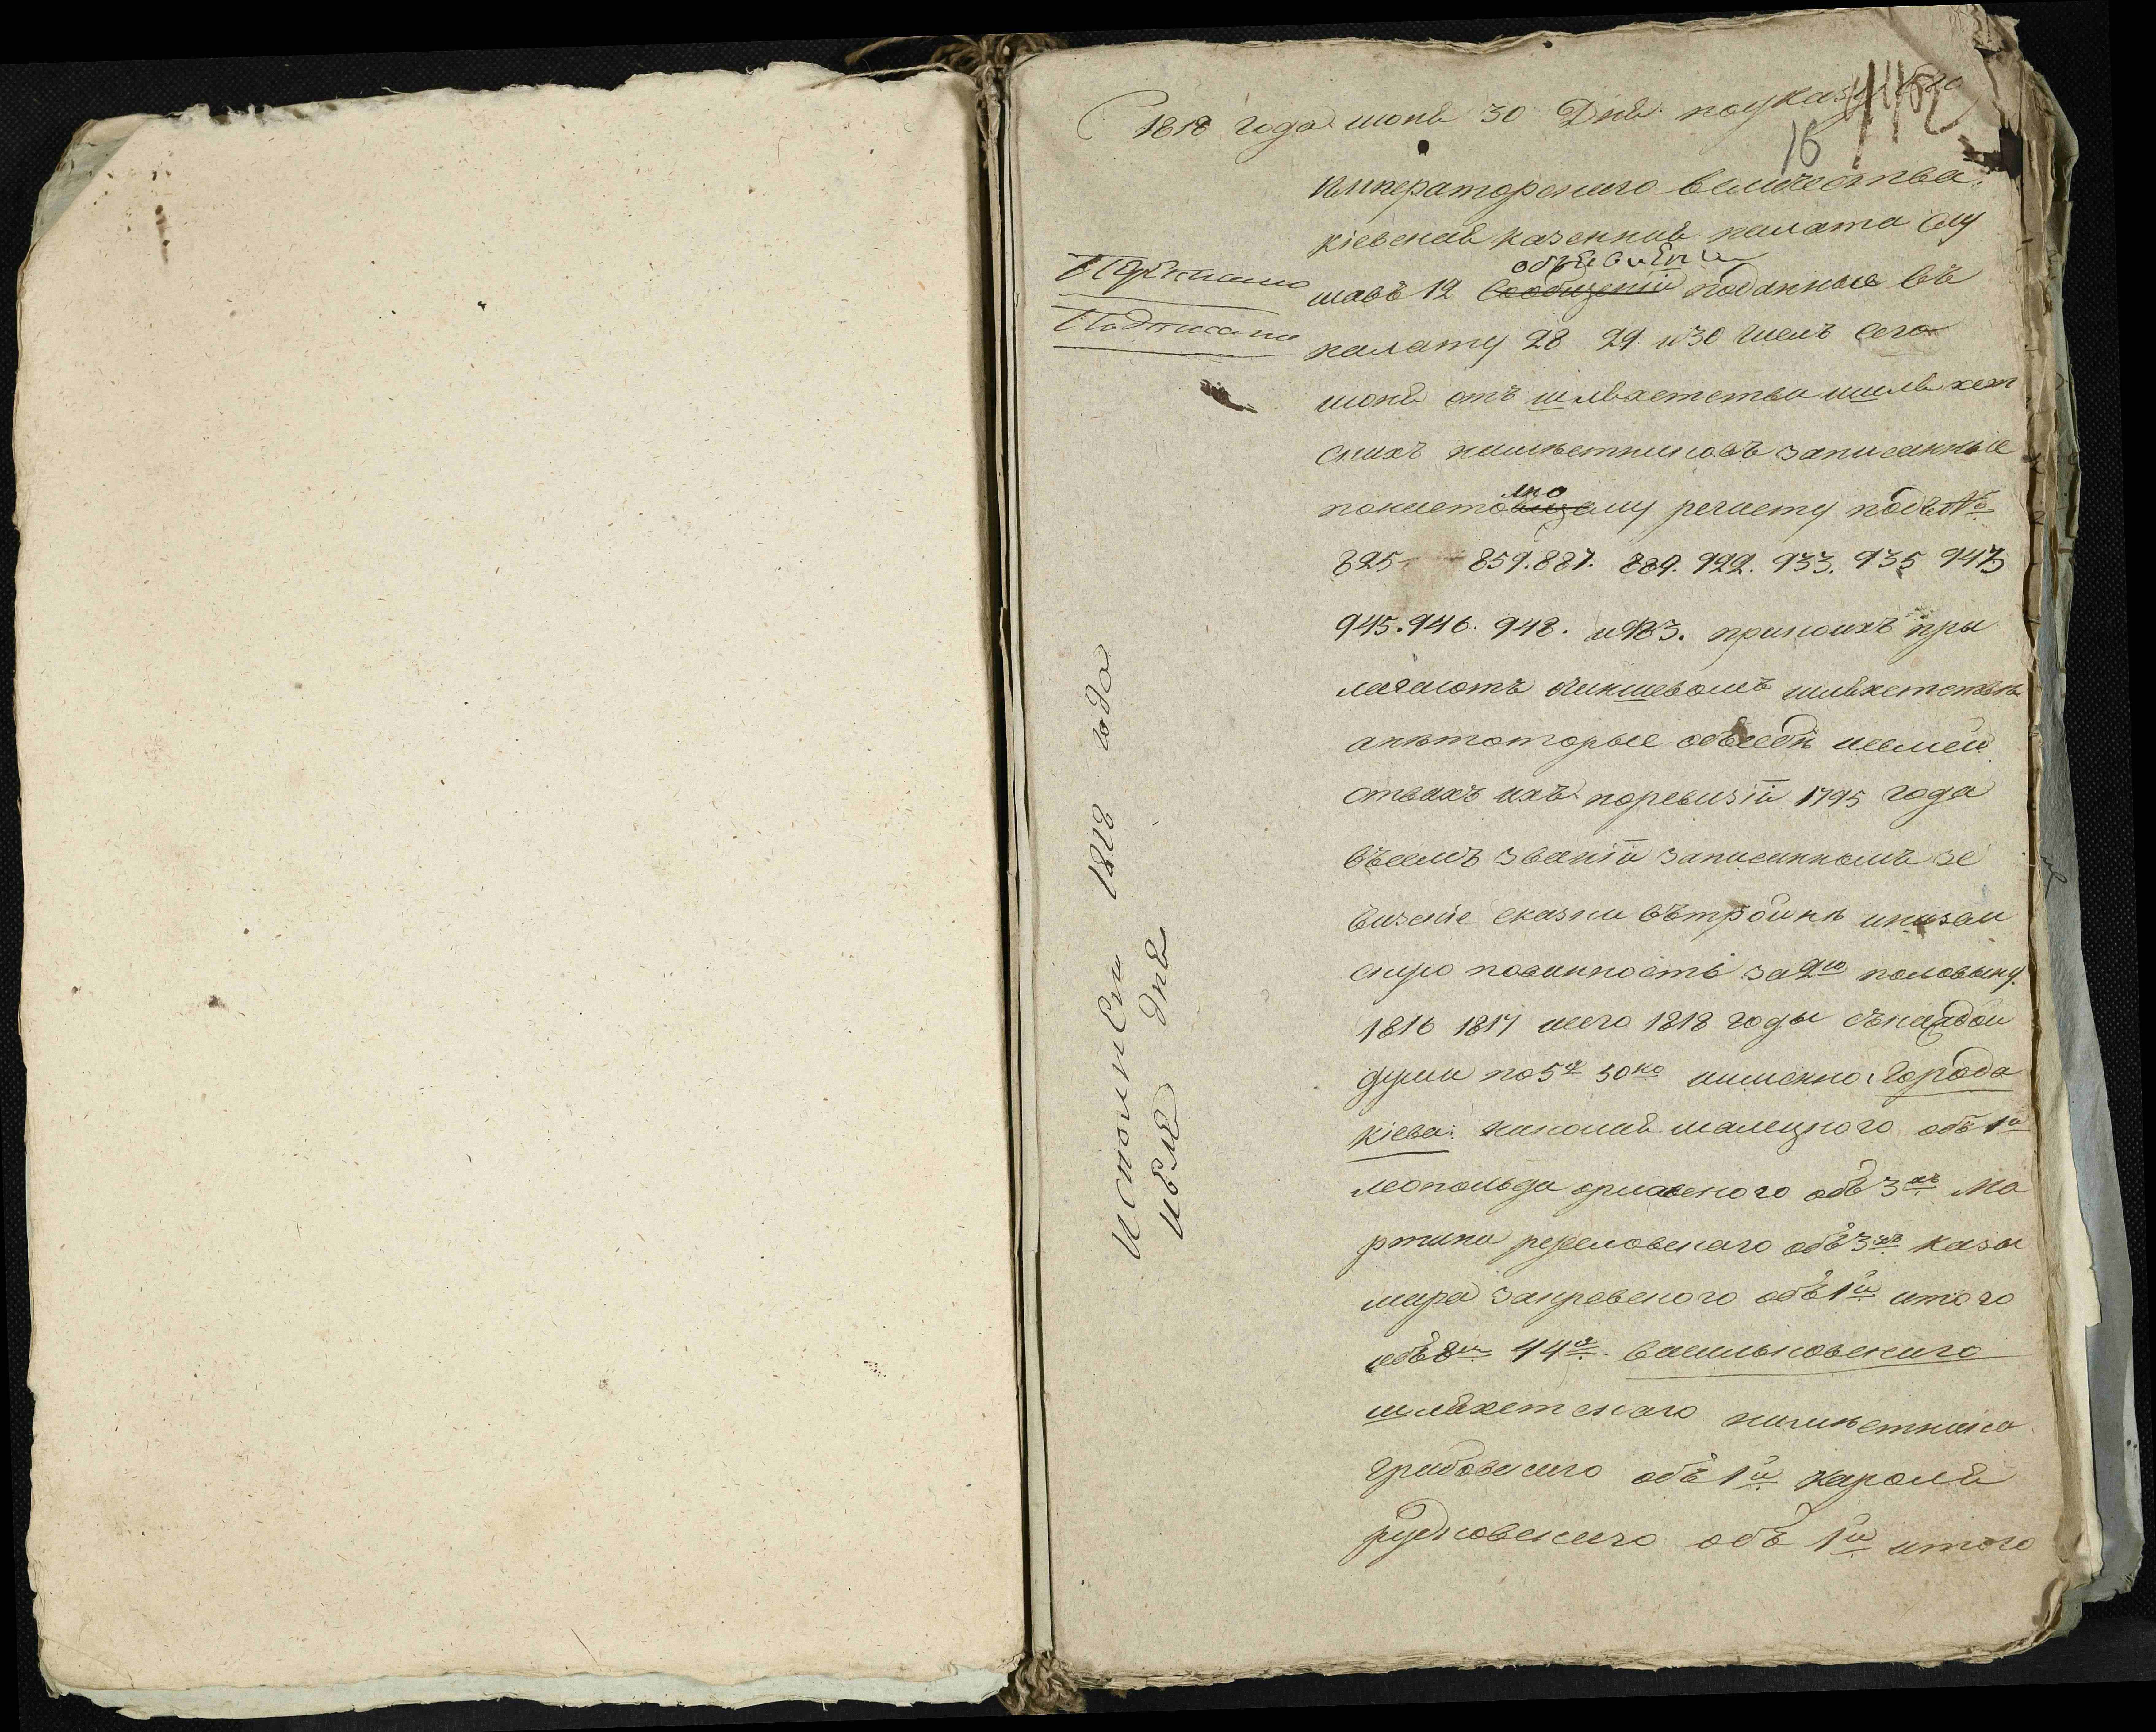 1818 года июня 30 дня по указу его
16
императорского величества.
кіевская казенная палата слу
объявленіи
шавъ 12 сообщеній поданные въ
палату 28 29 и 30 числъ сего
июня отъ шляхетства и шляхет
скихъ намѣстниковъ записанные
по настоящему регистру подъ №
825 859. 887. 889. 922. 933. 935 943
945. 946. 948. и 983. при коихъ при
лагаютъ чиншевомъ шляхетствѣ
а нѣкоторые объ себѣ и семей
ствахъ ихъ по ревизіи 1795 года
въ семъ званіи записанномъ ре
визскіе сказки въ тройнѣ и казач
скую повинность за 2ю половину
1816 1817 и сего 1818 годы съ каждой
души по 5 50 ко именно. города
кіева. малецкого объ 1й
леопольда орловского объ 3хъ ма
ртина объ 3хъ кази
мира закревского объ 1й итого
объ 8ми 44 васильковского
шляхетского намѣстника
грабовского объ 1й кароля
рудковского объ 1й итого
Подписано
Исполнен 1818 года
июля дня